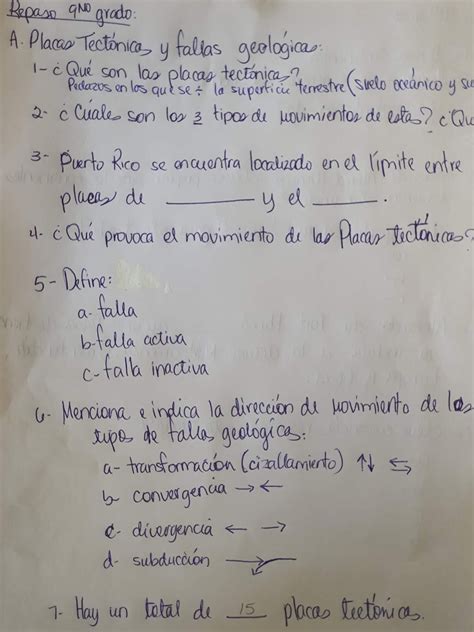 Repaso 9no grado:
A. Placas Tectónicas y fallas geológicas:
1- ¿Qué son las placas tectónica?
Pedazos en los que se ÷ la superficie terrestre (suelo oceánico y su
2- ¿Cúales son los 3 tipos de movimientos de estas? ¿Qu
3- Puerto Rico se encuentra localizado en el límite entre
placas de ________ y el ______.
4- ¿Qué provoca el movimiento de las Placas tectónicas?
5- Define:
a- falla
b- falla activa
c- falla inactiva
6- Menciona e indica la dirección de movimiento de los
tipos de fallas geológicas:
a- transformación (cizallamiento) ↑↓ ⇆
b- convergencia → ←
c- divergencia ← →
d- subducción
7- Hay un total de 15 placas tectónicas.